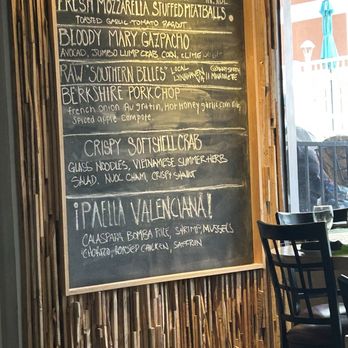 FRESH MOZZARELLA STUFFED MEATBALLS
ROASTED GARLIC TOMATO RAGOUT
BLOODY MARY GAZPACHO
AVOCADO, JUMBO LUMP CRAB, CORN, LIME
RAW "SOUTHERN BELLES" LOCAL
BERKSHIRE PORKCHOP
french onion au gratin, Hot Honey garlic
Spiced apple compote
CRISPY SOFTSHELL CRAB
GLASS NOODLES, VIETNAMESE SUMMER HERB
SALAD, NUOC CHAM, CRISPY SHALLOT
¡PAELLA VALENCIANA!
CALASPARA BOMBA RICE, SHRIMP, MUSSELS
CHORIZO, ROASTED CHICKEN, SAFFRON